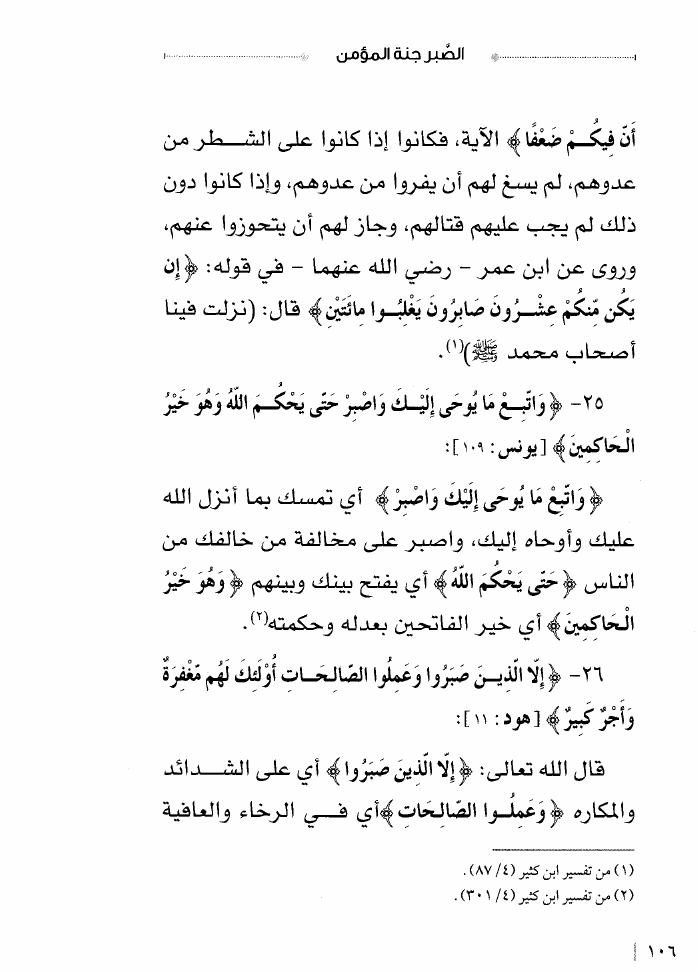 الصَّبر جنة المؤمن
أَنَّ فِيكُـمْ ضَعْفًا﴾ الآية، فكانوا إذا كانوا على الشطر من
عدوهم، لم يسغ لهم أن يفروا من عدوهم، وإذا كانوا دون
ذلك لم يجب عليهم قتالهم، وجاز لهم أن يتحوزوا عنهم،
وروى عن ابن عمر - رضي الله عنهما - في قوله: ﴿إِن
يَكُن مِّنكُمْ عِشْـرُونَ صَابِرُونَ يَغْلِبُـوا مِائَتَيْنِ﴾ قال: (نزلت فينا
أصحاب محمد ﷺ)(١).
٢٥- ﴿وَاتَّبِـعْ مَا يُوحَى إِلَيْـكَ وَاصْبِرْ حَتَّى يَحْكُـمَ اللَّهُ وَهُوَ خَيْرُ
الْحَاكِمِينَ﴾ [يونس: ١٠٩]:
﴿وَاتَّبِعْ مَا يُوحَى إِلَيْكَ وَاصْبِرْ﴾ أي تمسك بما أنزل الله
عليك وأوحاه إليك، واصبر على مخالفة من خالفك من
الناس ﴿حَتَّى يَحْكُمَ اللَّهُ﴾ أي يفتح بينك وبينهم ﴿وَهُوَ خَيْرُ
الْحَاكِمِينَ﴾ أي خير الفاتحين بعدله وحكمته(٢).
٢٦- ﴿إِلَّا الَّذِيـنَ صَبَرُوا وَعَمِلُوا الصَّالِحَـاتِ أُوْلَئِكَ لَهُم مَّغْفِرَةٌ
وَأَجْرٌ كَبِيرٌ﴾ [هود: ١١]:
قال الله تعالى: ﴿إِلَّا الَّذِينَ صَبَرُوا﴾ أي على الشدائد
والمكاره ﴿وَعَمِلُـوا الصَّالِحَاتِ﴾أي في الرخاء والعافية
(١) من تفسير ابن كثير (٤/ ٨٧).
(٢) من تفسير ابن كثير (٤/ ٣٠١).
١٠٦